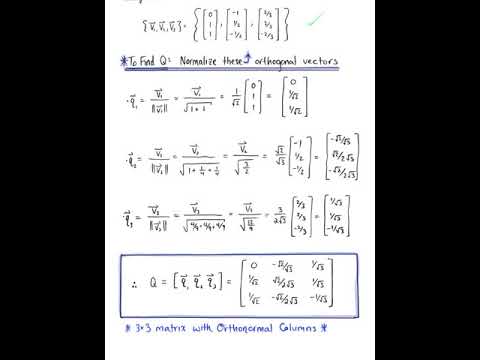 {V⃗₁, V⃗₂, V⃗₃} = { [0 1 1], [-1 1/2 -1/2], [2/3 2/3 -2/3] } ✓
*To Find Q: Normalize these * orthogonal vectors
· q⃗₁ = V⃗₁/||V⃗₁|| = V⃗₁/√(1+1) = 1/√2 [0 1 1] = [0 1/√2 1/√2]
· q⃗₂ = V⃗₂/||V⃗₂|| = V⃗₂/√(1+1/4+1/4) = V⃗₂/√(3/2) = √2/√3 [-1 1/2 -1/2] = [-√2/√3 √2/2√3 -√2/2√3]
· q⃗₃ = V⃗₃/||V⃗₃|| = V⃗₃/√(4/9+4/9+4/9) = V⃗₃/√(12/9) = 3/2√3 [2/3 2/3 -2/3] = [1/√3 1/√3 -1/√3]
∴ Q = [q⃗₁ q⃗₂ q⃗₃] = [0 -√2/√3 1/√3
1/√2 √2/2√3 1/√3
1/√2 -√2/2√3 -1/√3]
* 3×3 matrix with Orthonormal Columns *